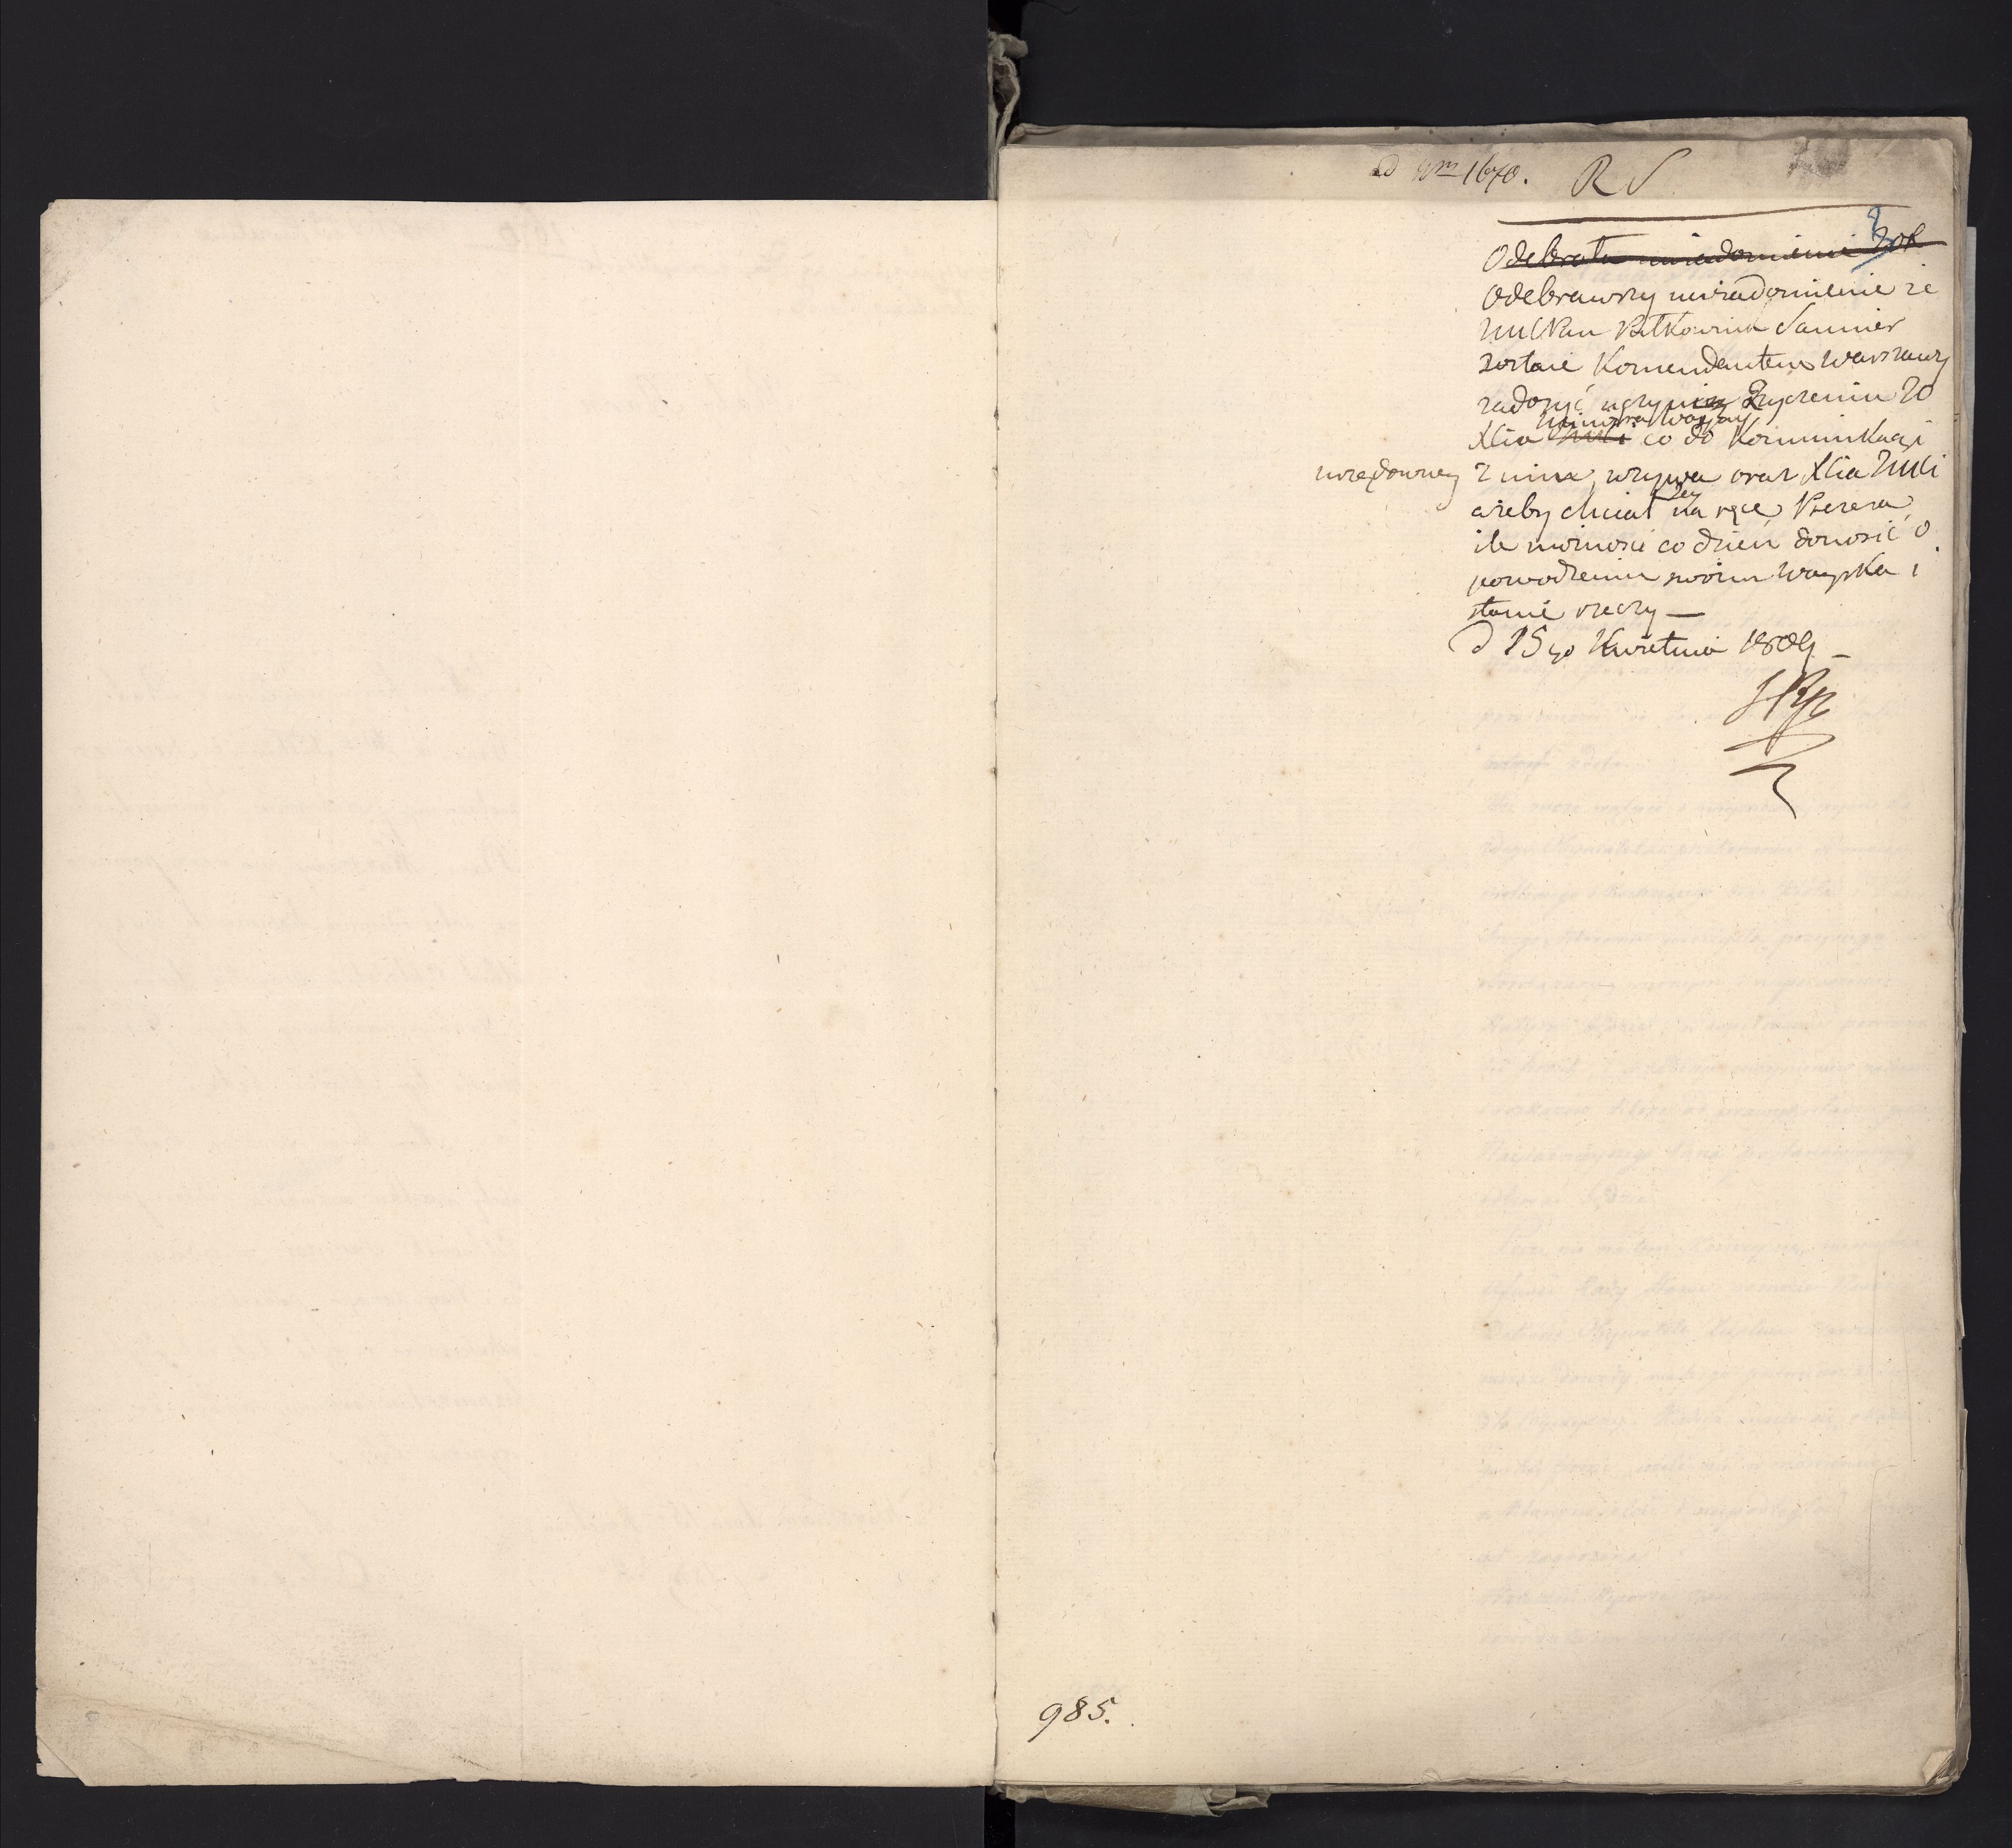 ad Nrm 1670. R S
3
Odebrała uwiadomienie
Odebrawszy uwiadomienie że
Pułkownik Saunier
zostaie Komendantem Warszawy
zadosyć uczyni życzeniu JO
Ministra Woyny
Xcia co do Kommunikacyi
urzędowney z nim, wzywa oraz Xcia JMCi
ażeby chciał na ręce Prezesa
ile możności co dzień donosić o
powodzeniu swoim Woyska i
stanie rzeczy —
d 15go Kwietnia 1809 —
985.